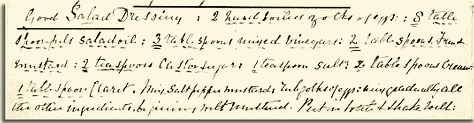 Good Salad Dressing; 2 hard boiled yolks of eggs: 8 table
spoonfuls salad oil: 3 table spoons mixed vinegars: 2 table spoons French
mustard: 2 teaspoons Castor sugar: 1 teaspoon salt: 2 table spoons Cream:
1 table spoon Claret. Mix salt pepper mustard & rub yolks of eggs: being gradually all
the other ingredients beginning with mustard. Put in bottle & shake well: